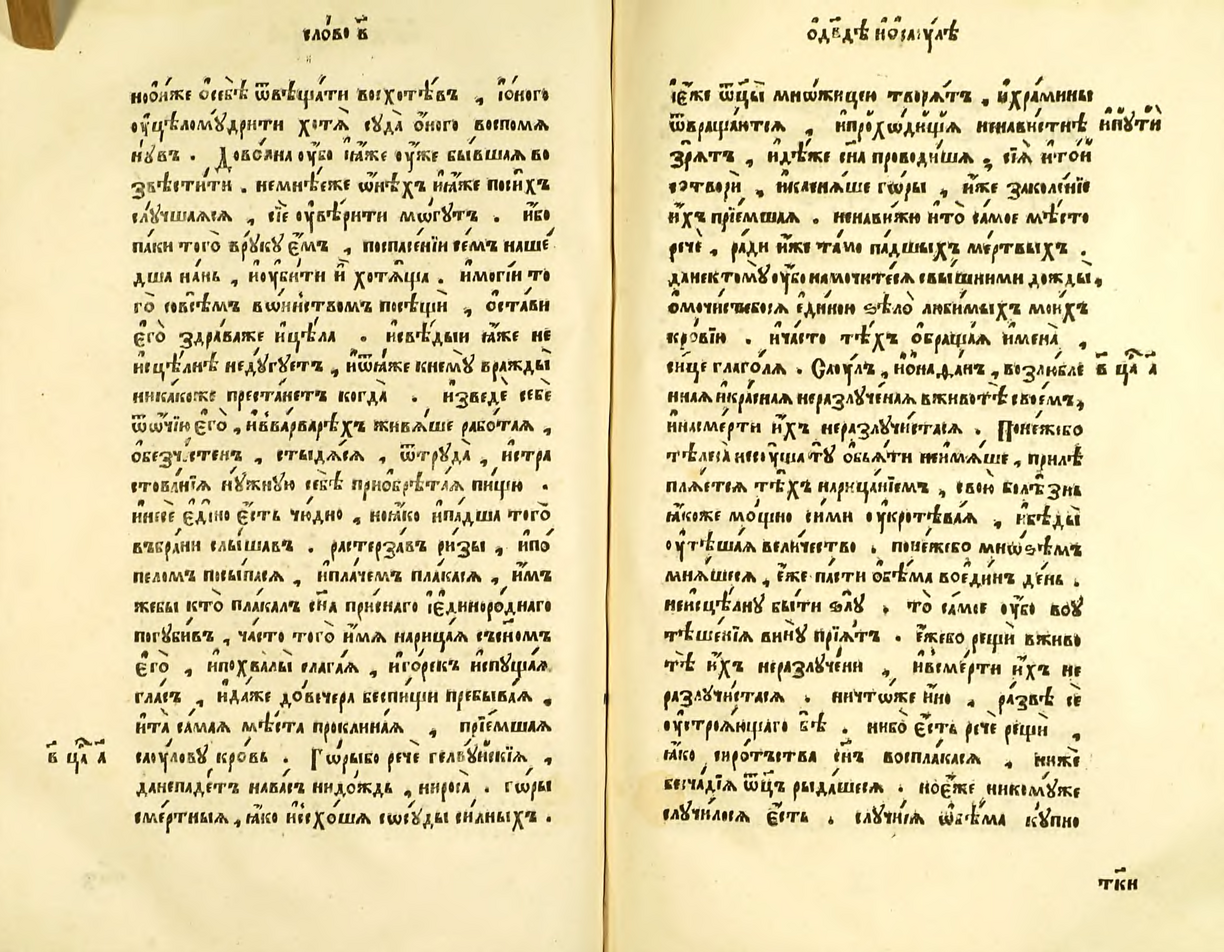 сло́во в҃
но они́же ѻ҆себѣ̀ ѿвѣща́ти восхотѣ́въ , і҆о́ного
оу҆цѣлому́дрити хотѧ̀ суда̀ о҆́ного воспомѧ
ну́въ . Довол́на оу҆́бо ꙗ҆́же оу҆́же бы́вшаѧ во
звѣсти́ти . немнѣ́еже ѡ҆нѣ́хъ иꙗ҆́же поси́хъ
случшаѧсѧ , сїѐ оу҆вѣ́рити мо́гутъ . и҆́бо
па́ки того̀ вру́ку є҆́мъ , поспасе́нїи се́мъ наше́
дша на́нь , и҆оу҆би́ти и҆̀ хотѧ́ща . и҆мо́гїи то
го̀ совсѣ́мъ во́инствомъ посѣщѝ , ѻ҆ста́ви
є҆го̀ здра́важе и҆цѣ́ла . и҆свѣ́дыи ꙗ҆́же не
исцѣ́лнѣ неду́гуетъ , и҆ѿꙗ́же кнему̀ вражды̀
ника́коже преста́нетъ когда̀ . и҆зведѐ себѐ
ѿѻ҆́чїю є҆го̀ , и҆вва́рварѣхъ живѧ́ше рабо́таѧ ,
ѻ҆безче́стенъ , стыдѧ́сѧ , ѿтруда̀ , истра
стова́нїѧ ну́жную себѣ̀ приобрѣта́ѧ пи́щю .
и҆несѐ є҆ди́но є҆́сть чю́дно , ноꙗ҆́ко и҆па́дша того̀
въбра́ни слы́шавъ . растерза́въ ри́зы , и҆по́
пеломъ посы́пасѧ , и҆пла́чемъ пла́касѧ , и҆́мъ
жебы̀ кто̀ пла́калъ сн҃а при́снаго і҆є҆диноро́днаго
погуби́въ , ча́сто того̀ и҆́мѧ нарица́ѧ съсы́номъ
є҆го̀ , и҆похвалы̀ слага́ѧ , и҆го́рекъ испуща́ѧ
гла́съ , и҆да́же дове́чера беспи́щи пребыва́ѧ ,
и҆та̀ са́маѧ мѣ́ста проклина́ѧ , прїе́мшаѧ
саоу́лову кро́вь . Го́рыбо речѐ гелву́йскїѧ ,
данепаде́тъ нава́съ нидо́ждь , нироса̀ . го́ры
сме́ртныѧ , ꙗ҆́ко и҆схо́шѧ сосу́ды си́лныхъ .
в҃ цр҃ь а҃
ѻ҆дв҃дѣ и҆ѻ҆саꙋ́лѣ
і҆є҆́же ѿц҃ы̀ мно́жицею творѧ́тъ , и҆хра́мины
ѿвраща́ютсѧ , и҆прохо́дѧщїѧ ненави́стнѣ и҆пути̑
зрѧ́тъ , и҆дѣ́же сн҃а проводи́шѧ , сїѧ̀ и҆то́й
сотворѝ , и҆кленѧ́ше го́ры , и҆́же заколе́нїе
и҆́хъ прїе́мшаѧ . ненави́жю и҆то̀ са́мое мѣ́сто
речѐ , ра́ди и҆́же та́мо па́дшыхъ ме́ртвыхъ .
данектому̀ оу҆́бо намочи́тесѧ свы́шними дожды̀ ,
ѻ҆мочи́стебосѧ є҆ди́ною ѕѣло̀ люби́мыхъ мои́хъ
кро́вїю . и҆ча́сто тѣ́хъ ѻ҆браща́ѧ и҆мена̀ ,
си́це глаго́лѧ . Саоу́лъ , и҆ѻ҆нафа́нъ , возлю́бле
в҃ цр҃ь а҃
ннаѧ и҆кра́снаѧ неразлу́ченаѧ вживотѣ̀ свое́мъ ,
и҆насме́рти и҆́хъ неразлучи́стасѧ . Поне́жебо
тѣлеса̀ несу́ща ту̀ ѻ҆б̾ѧ́ти неимѧ́ше , прилѣ
плѧ́етсѧ тѣ́хъ нарица́нїемъ , свою̀ болѣ́знь
ꙗ҆́коже мо́щно си́ми оу҆кротѣва́ѧ , и҆бѣды̀
оу҆тѣша́ѧ вели́чество . поне́жебо мно́ѕѣмъ
мнѧ́шесѧ , є҆́же па́сти ѻ҆бѣ́ма воеди́нъ де́нь .
неисцѣ́лну бы́ти ѕлу̀ , то̀ са́мое оу҆́бо воу
тѣше́нїѧ вину̀ прїѧ́тъ . є҆́жебо рещѝ вживо
тѣ̀ и҆́хъ неразлуче́ни , и҆всме́рти и҆́хъ не
разлучи́стасѧ . ничто́же и҆́но , ра́звѣ сѐ
оу҆строѧ́ющаго бѣ̀ . ни́бо є҆́сть речѐ рещѝ ,
ꙗ҆́ко сиро́тьства сн҃ъ воспла́касѧ , ни́же
бесча́дїѧ ѿц҃ъ рыда́шесѧ . ноє҆́же никому́же
случи́лосѧ є҆́сть . случи́сѧ ѻ҆бѣ́ма ку́пно
тки